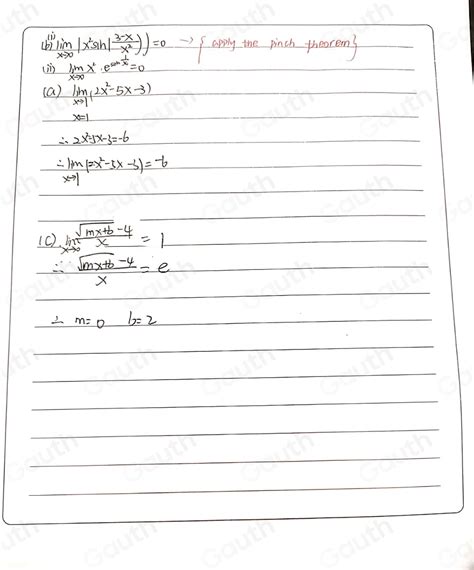 (i)
(b) lim x→0 |x² sin(3-x/x²)) = 0 → { apply the pinch theorem}
(ii) lim x→0 x² · e^{sin 1/x} = 0
(a) lim x→1 (2x²-5x-3)
x=1
∴ 2x²-5x-3=-6
∴ lim x→1 (2x²-5x-3)=-6
(c) lim x→0 √(mx+b) -4 / x = 1
∴ √(mx+b) -4 / x = e
∴ m=0 b=2
Gauth